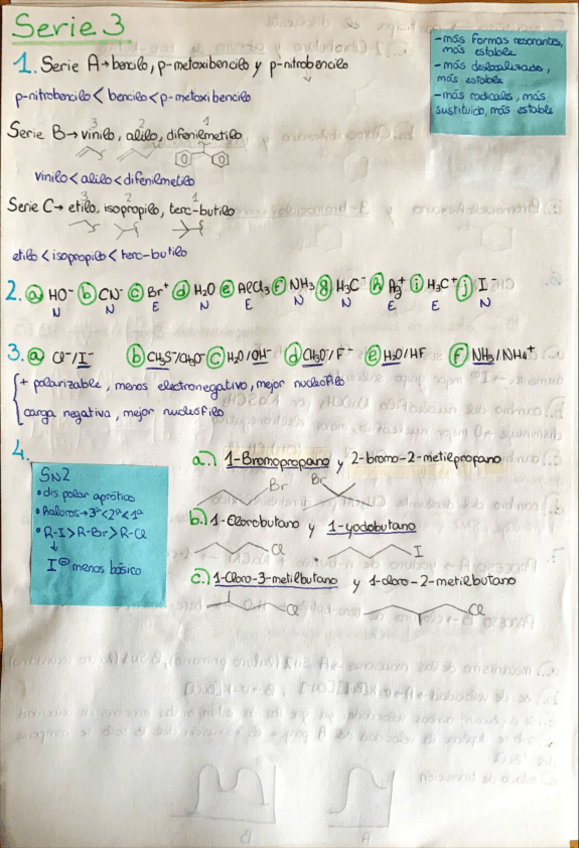 Serie 3
1. Serie A→bencilo, p-metoxibencilo y p-nitrobencilo
p-nitrobencilo < bencilo < p-metoxibencilo
- más formas resonantes, más estable
- más deslocalizado, más estable
- más radicales, más sustituido, más estable
Serie B→vinilo, alilo, difenilmetilo
3 2 1
vinilo < alilo < difenilmetilo
Serie C→ etilo, isopropilo, terc-butilo
3 2 1
etilo < isopropilo < terc-butilo
2. a HO⁻ b CN⁻ c Br⁺ d H₂O e AlCl₃ f NH₃ g H₃C⁻ h Ag⁺ i H₃C⁺ j I⁻
N N E N E N N E E N
3. a Cl⁻/I⁻ b CH₃S⁻/CH₃O⁻ c H₂O/OH⁻ d CH₃O⁻/F⁻ e H₂O/HF f NH₃/NH₄⁺
+ polarizable, menos electronegativo, mejor nucleófilo
carga negativa, mejor nucleófilo
4.
SN2
• dis polar aprótico
• R-I>R-Br>R-Cl
↓
I⊖ menos básico
a.) 1-Bromopropano y 2-bromo-2-metilpropano
Br Br
b.) 1-Clorobutano y 1-yodobutano
Cl I
c.) 1-Cloro-3-metilbutano y 1-cloro-2-metilbutano
Cl Cl